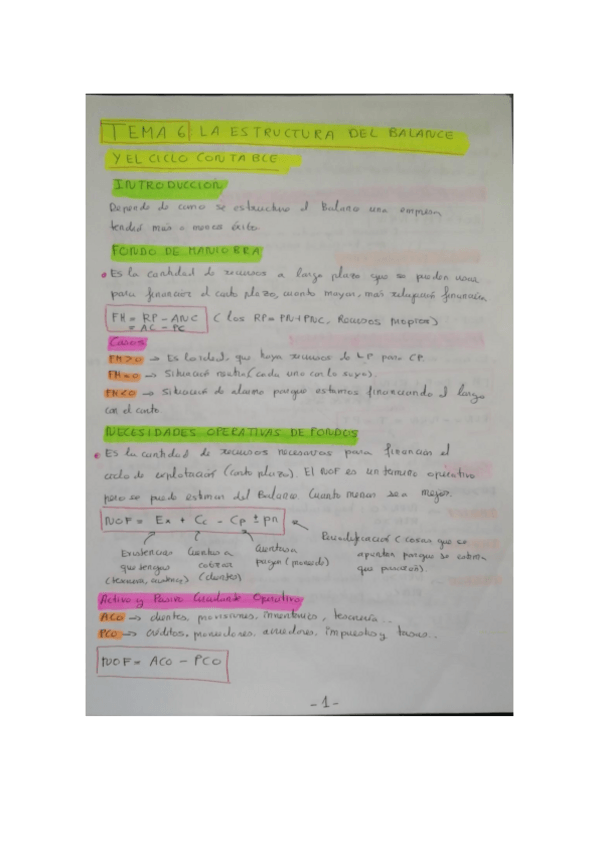 TEMA 6 LA ESTRUCTURA DEL BALANCE
Y EL CICLO CONTABLE
INTRODUCCIÓN
Depende de como se estructure el Balance una empresa
tendrá mas o menos éxito.
FONDO DE MANIOBRA
• Es la cantidad de recursos a largo plazo que se pueden usar
para financiar el corto plazo, cuanto mayor, mas relajación financiera
FM = RP - ANC (los RP = PN + PNC, Recursos propios)
= AC - PC
Casos
FM > 0 → Es lo ideal, que haya recursos de LP para CP.
FM = 0 → Situación neutra (cada uno con lo suyo).
FM < 0 → Situación de alarma porque estamos financiando el largo
con el corto.
NECESIDADES OPERATIVAS DE FONDOS
• Es la cantidad de recursos necesarios para financiar el
ciclo de explotación (corto plazo). El NOF es un termino operativo
pero se puede estimar del Balance. Cuanto menor sea mejor.
NOF = Ex + Cc - Cp ± pn
Periodificación (cosas que se
apuntan porque se sabe
que pasarán).
Existencias
que tengas
Cuentas a
cobrar
(clientes)
Cuentas a
pagar (proveedor)
Activo y Pasivo Circulante Operativo
ACO → clientes, provisiones, inventarios, tesorería...
PCO → créditos, proveedores, acreedores, impuestos y tasas..
NOF = ACO - PCO
- 1 -